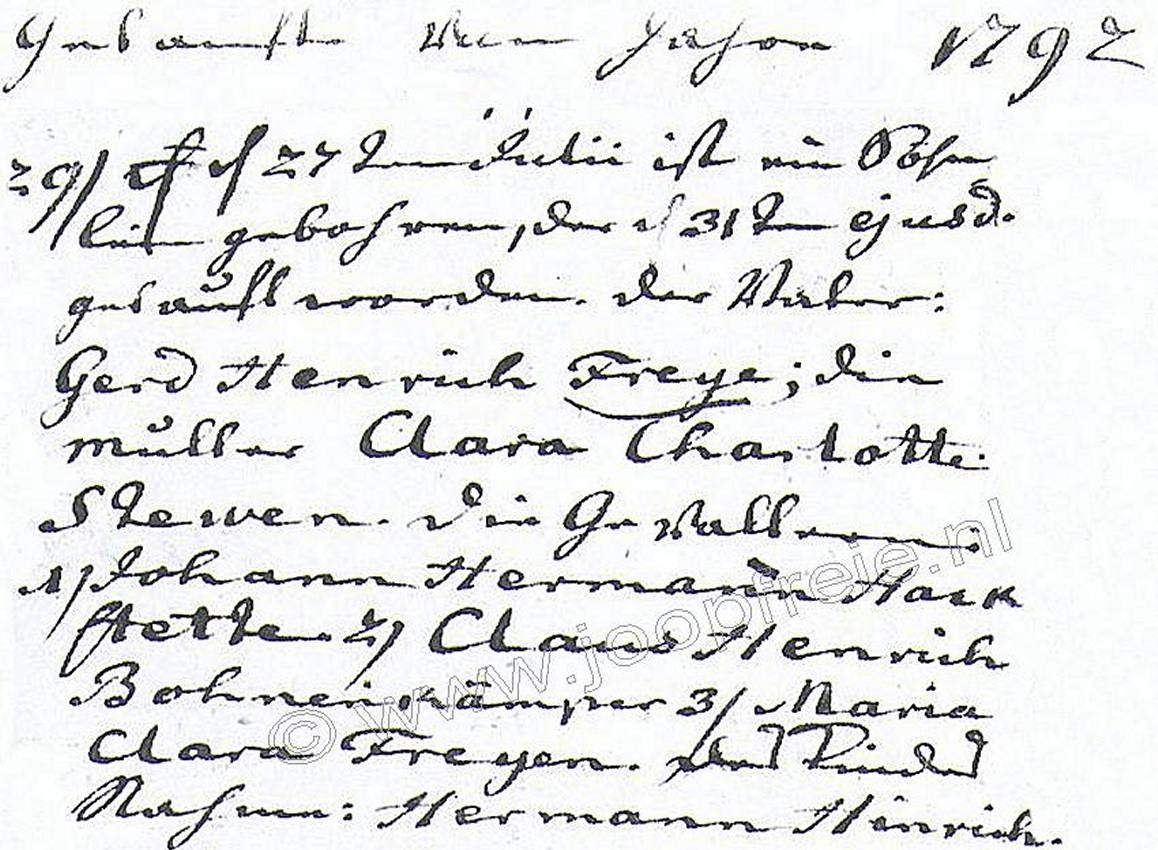 Getauffte vom Jahre 1792
29/ d 27ten Julii ist ein Söhn
lein gebohren, der d 31ten ejusd.
getaufft worden. der Vater:
Gerd Henrich Freye; die
mutter Clara Charlotte
Stewen. die Gevattern:
1/ Johann Hermann Hack
stette. 2/ Claus Henrich
Bohnenkämper 3/ Maria
Clara Freyen. des Kindes
Nahme: Hermann Hinrich.
© www.joopfreije.nl